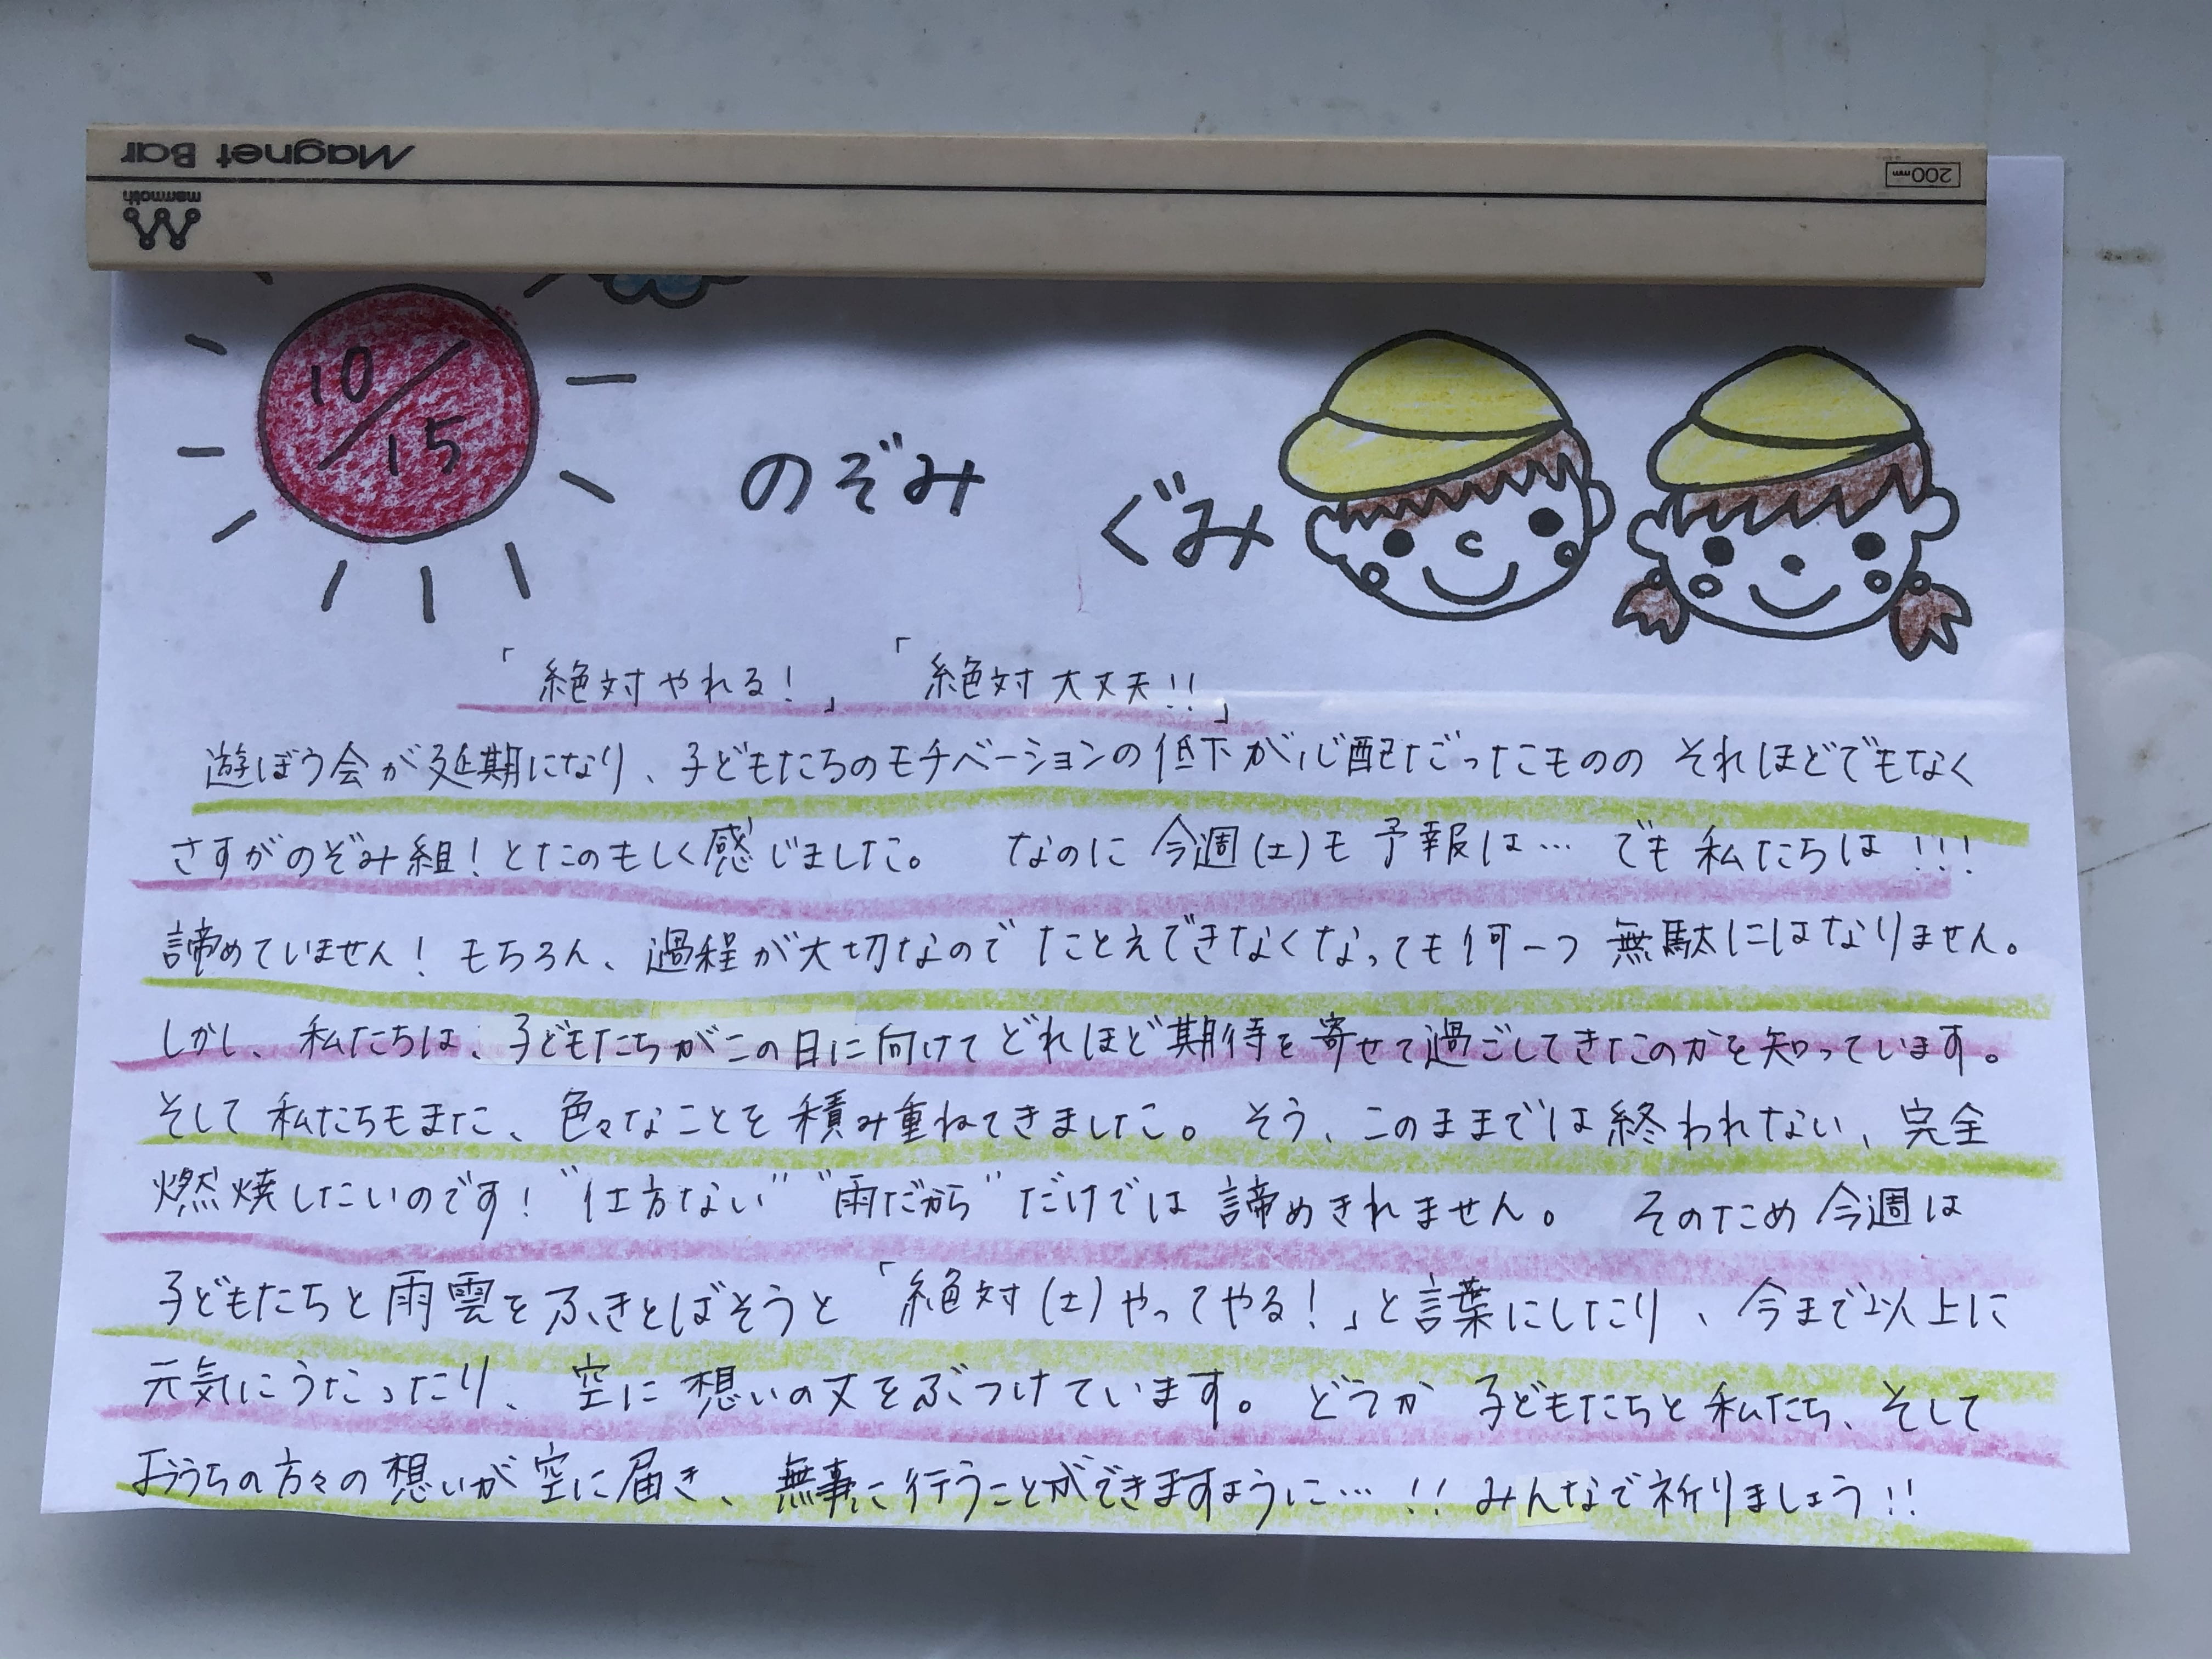 Magnet Bar
mammoth
200mm
10/15
のぞみ ぐみ
「絶対やれる！」「絶対大丈夫！！」
遊ぼう会が延期になり、子どもたちのモチベーションの低下が心配だったものの それほどでもなく
さすがのぞみ組！とたのもしく感じました。 なのに 今週(土)も予報は… でも 私たちは！！！
諦めていません！もちろん、過程が大切なので たとえできなくなっても何一つ 無駄にはなりません。
しかし、私たちは、子どもたちがこの日に向けてどれほど期待を寄せて過ごしてきたのかを知っています。
そして私たちもまた、色々なことを積み重ねてきました。そう、このままでは終われない、完全
燃焼したいのです！“仕方ない”“雨だから”だけでは諦めきれません。 そのため今週は
子どもたちと雨雲をふきとばそうと「絶対(土)やってやる！」と言葉にしたり、今まで以上に
元気にうたったり、空に想いの丈をぶつけています。どうか子どもたちと私たち、そして
おうちの方々の想いが空に届き、無事に行うことができますように…！！みんなで祈りましょう！！